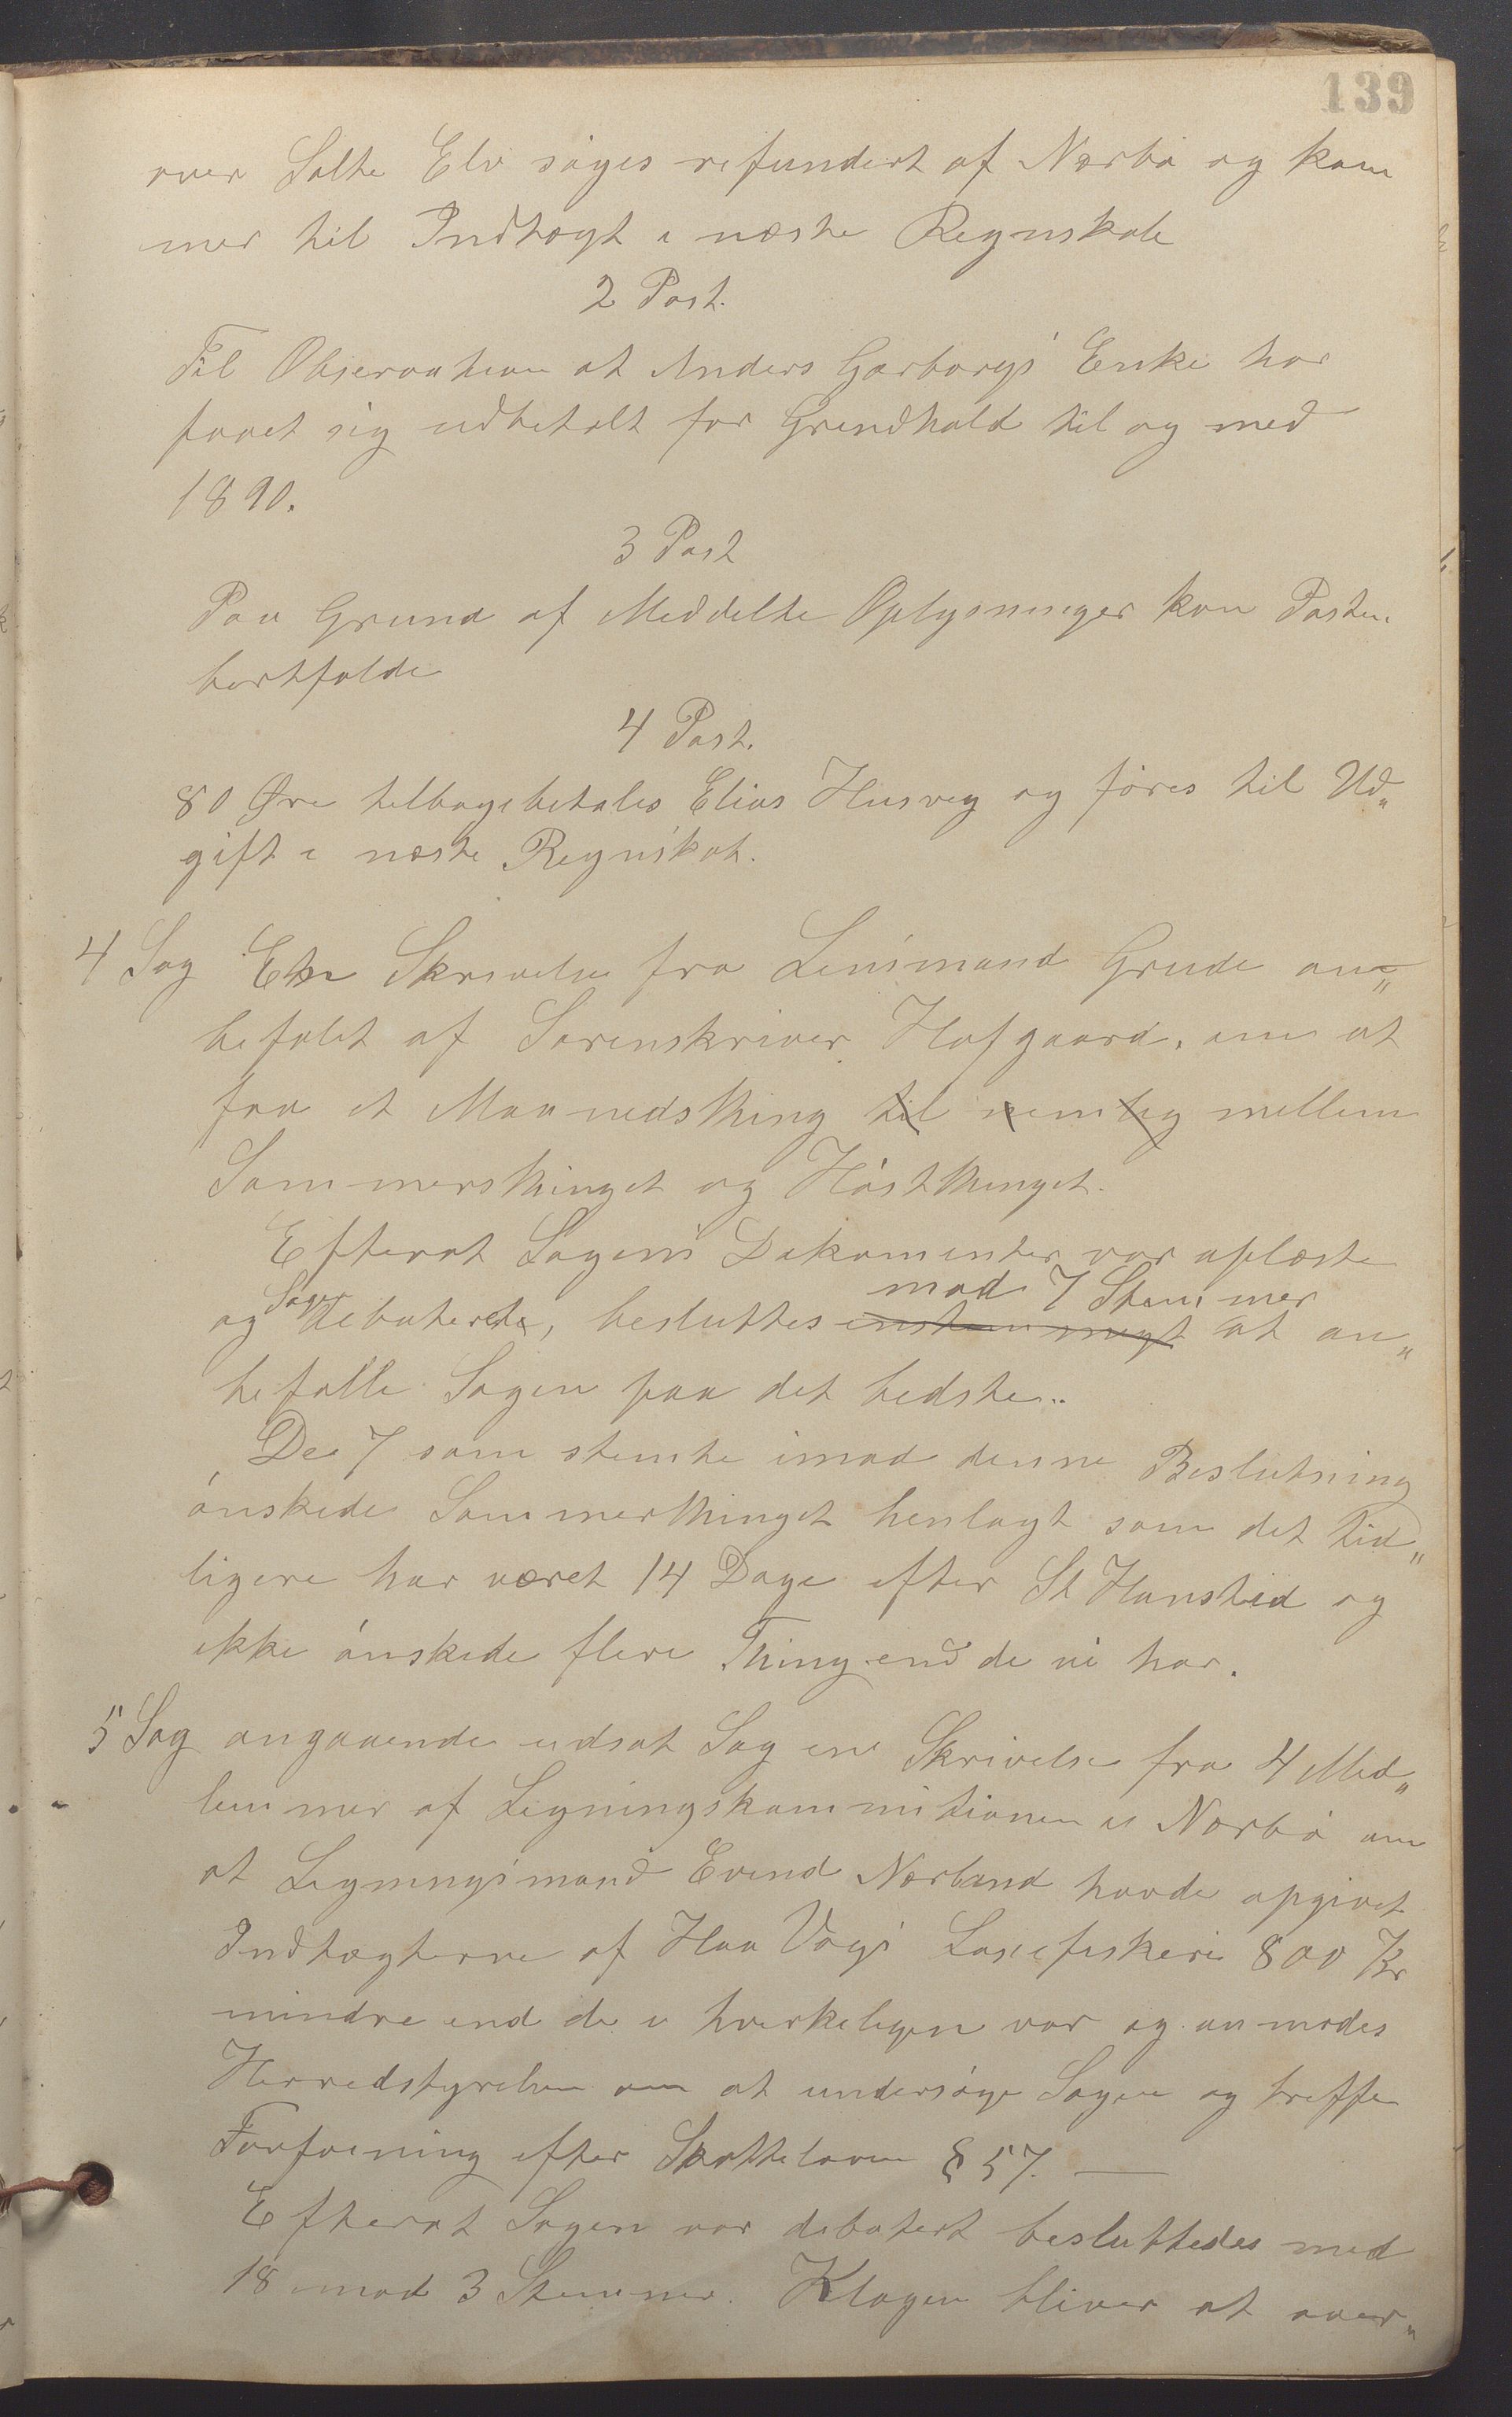 139
over Salte Elv søges refundert af Nærbø og kom
mer til Indtægt i næste Regnskab
2 Post.
Til Observation at Anders Garborgs Enke har
faaet sig udbetalt for Grindhold til og med
1890.
3 Post
Paa Grund af Meddelte Oplysninger kan Posten
bortfalde
4 Post.
80 Øre tilbagebetales Elias Husveg og føres til Ud„
gift i næste Regnskab.
4 Sag En Skrivelse fra Lensmand Grude an„
befalet af Sorenskriver Hofgaard, om at
faa et Maanedsthing til nemlig mellem
Sommersthinget og Høstthinget.
Efterat Sagens Dokumenter var oplæste
mod 7 Stemmer
og Sagen debaterte, besluttes enstemmigt at an„
befalle Sagen paa det bedste..
De 7 som stemte imod denne Beslutning
ønskede Sommerthinget henlagt som det tid„
ligere har været 14 Dage efter St Hanstid og
ikke ønskede flere Thing end de vi har.
5 Sag angaaende udsat Sag en Skrivelse fra 4 Med„
lemmer af Ligningskommitionen i Nærbø om
at Ligningsmand Evind Nærland havde opgivet
Indtægterne af Haa Vågs Laxefiskeri 800 Kr
mindre end de i hverkeligen var og anmodes
Herredstyrelsen om at undersøge Sagen og treffe
Forføining efter Skatteloven § 57. —
Efterat Sagen var debatert besluttedes med
18 mod 3 Stemmer. Klagen bliver at over„